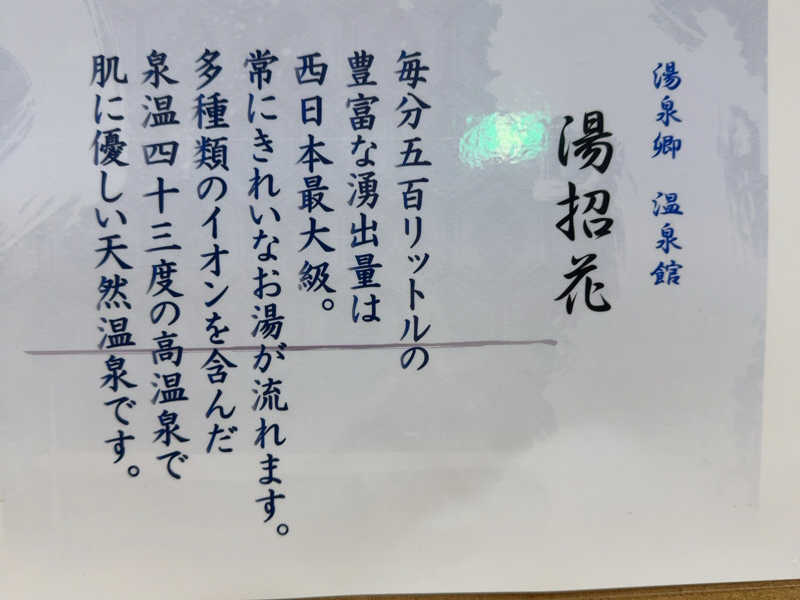 湯泉郷 温泉館
湯招花
毎分五百リットルの
豊富な湧出量は
西日本最大級。
常にきれいなお湯が流れます。
多種類のイオンを含んだ
泉温四十三度の高温泉で
肌に優しい天然温泉です。